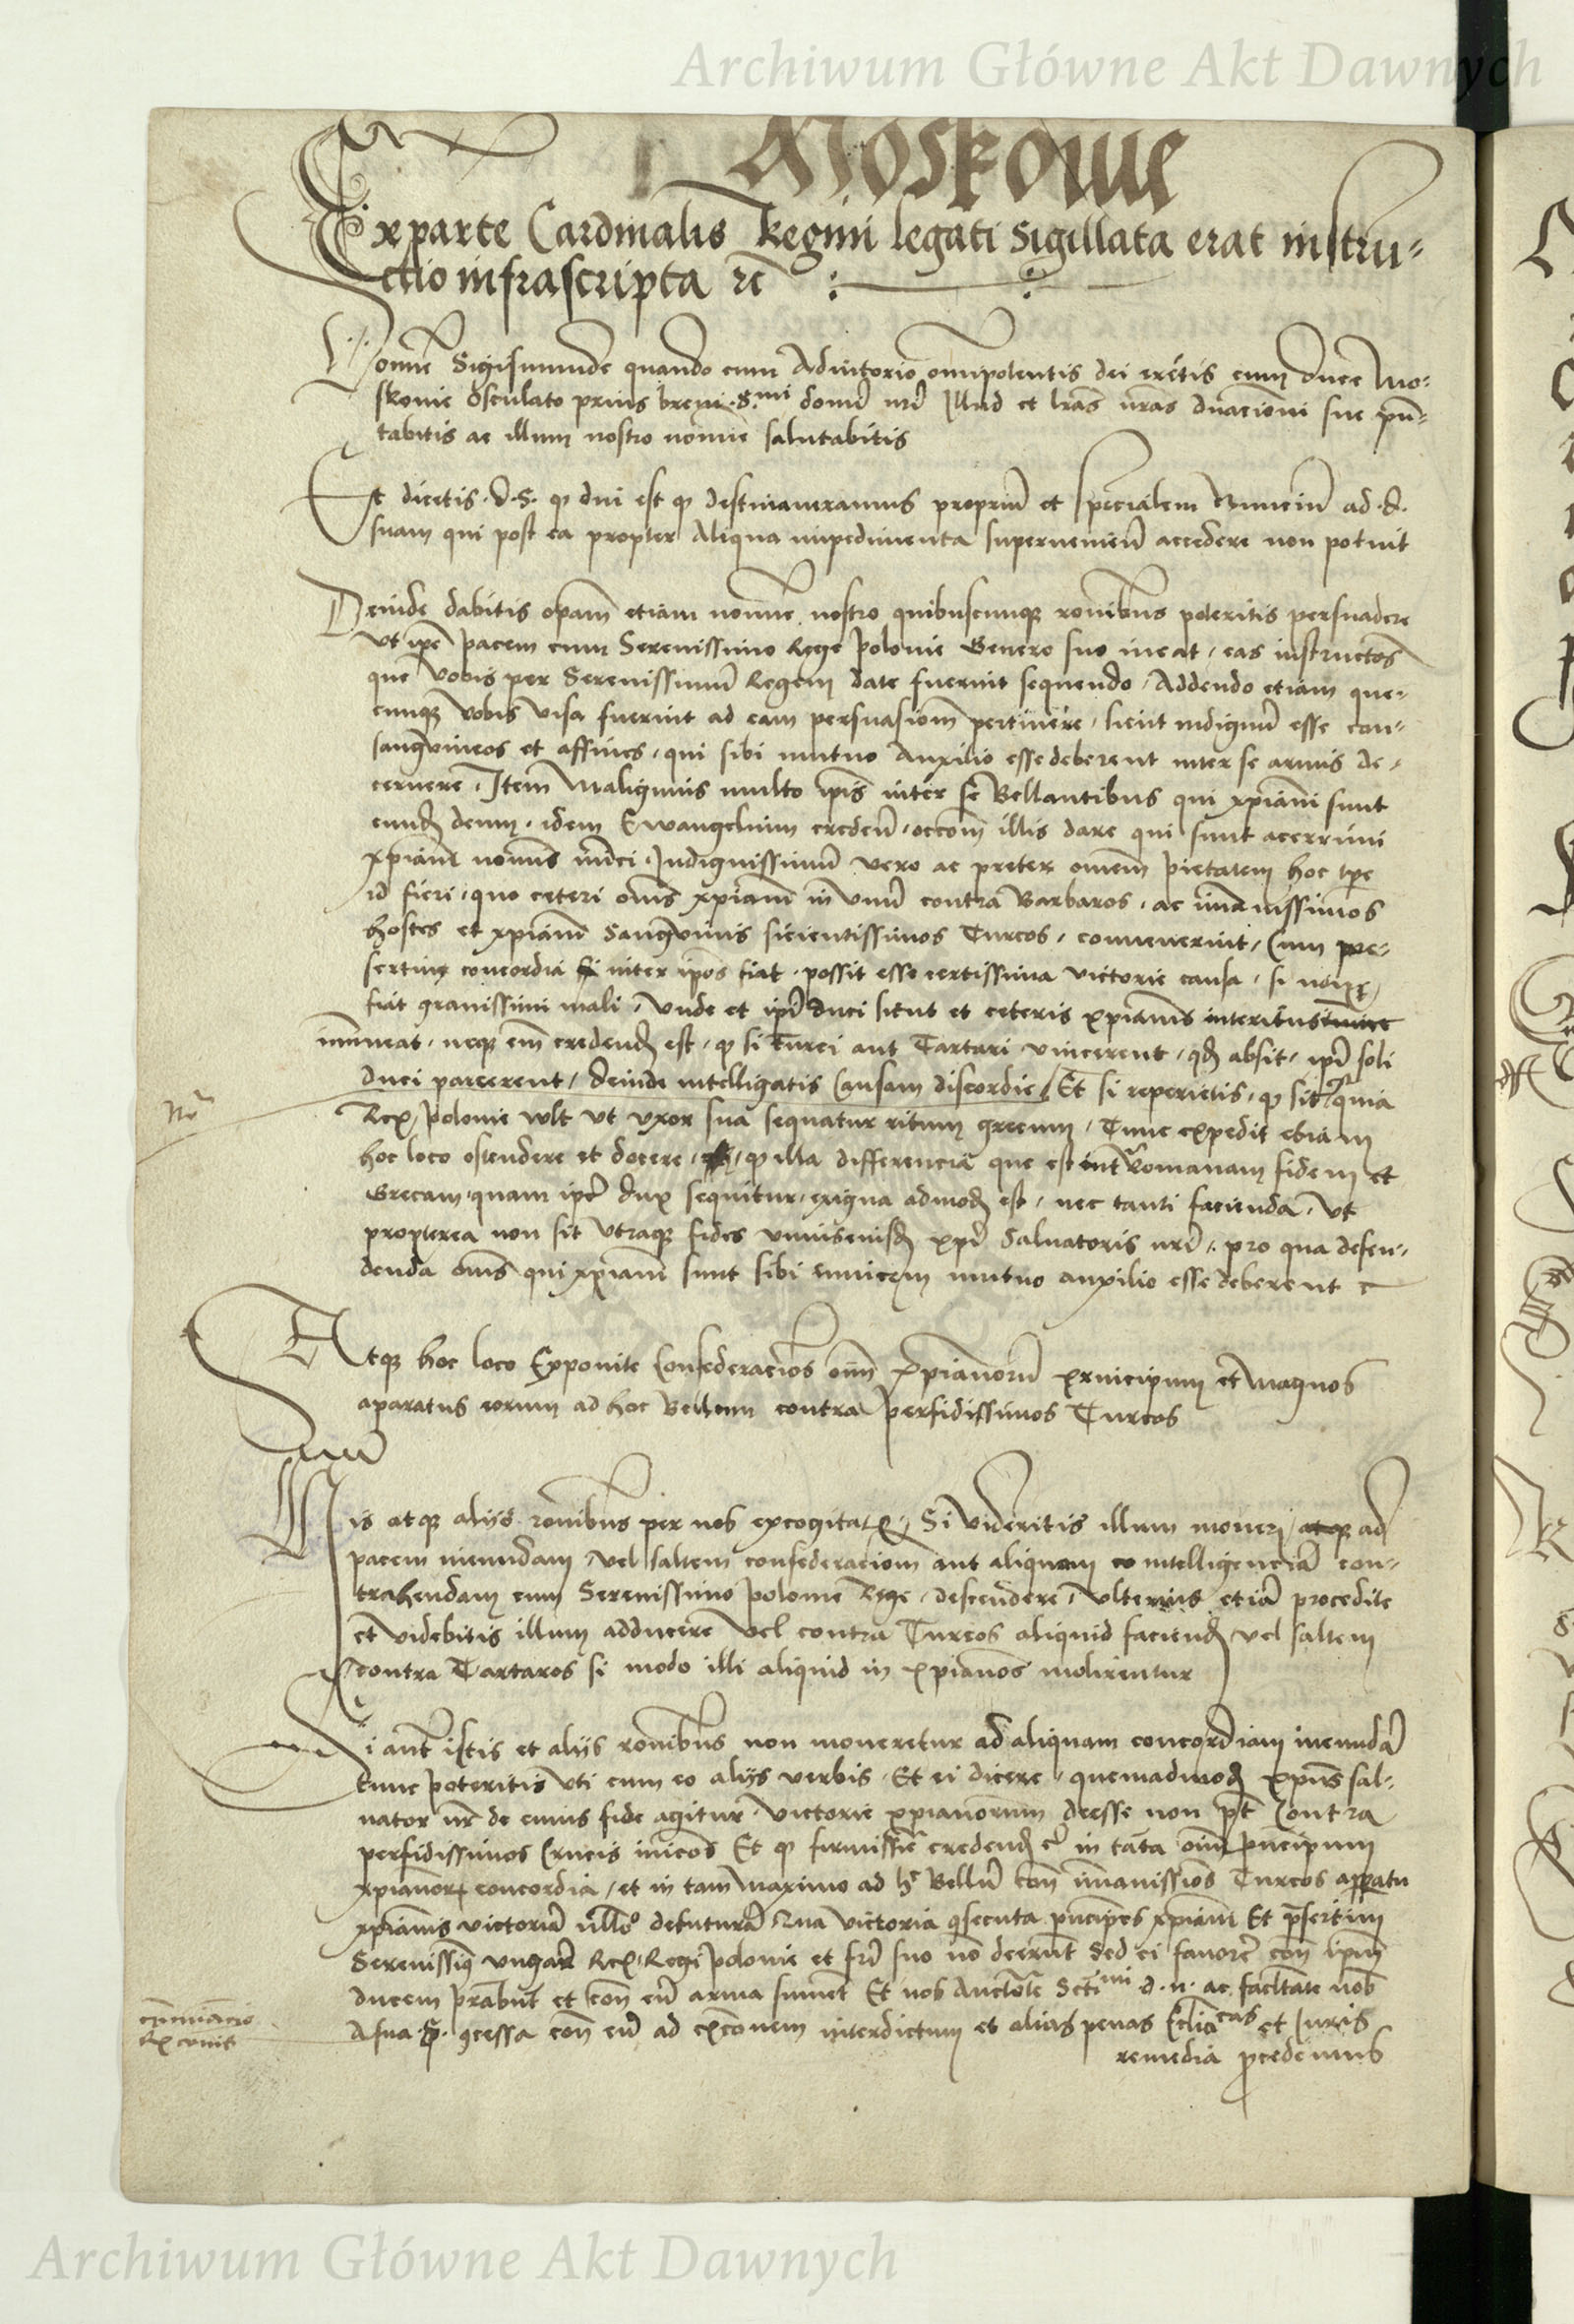 Archiwum Główne Akt Dawnych
Moskowie
Ex parte Cardinalis Regini legati Sigillata erat instru-
ctio infrascripta rc̄
Domine Sigismunde quando cum Adiutorio om̄ipotentis dei eritis cum duce Mo-
skouie Osculato prius breui S.mi domī nr̄i Illud et lr̄as nr̄as dn̄acioni sue pn̄-
tabitis ac illum nostro noīe salutabitis
Et dicetis d. S. qꝫ diu est qꝫ destinaueramus propriū et specialem Nunciū ad d.
suam qui post ea propter Aliqua impedimenta superuenien̄ accedere non potuit
Deinde dabitis opam̄ etiam noīe nostro quibuscunqꝫ ronibus poteritis persuadere
Vt ipe pacem cum Serenissimo Rege polonie Genero suo ineat, eas instructōes
que Vobis per Serenissimū Regem date fuerunt sequendo, Addendo etiam que-
cunqꝫ Vobis visa fuerint ad eam persuasiom̄ pertinere, sicut indignū esse con-
sangwineos et affines, qui sibi mutuo Auxilio esse deberent inter se armis de-
cernere, Item Malignius multo ipis inter se Bellantibus qui xp̄iani sunt
eundē deum, idem Ewangelium creden̄, occom̄ illis dare qui sunt acerrimi
xp̄iani nomīs inīci Indignissimū vero ac preter omēm pietatem hoc tp̄e
id fieri, quo ceteri oms̄ xp̄iani in vnū contra Barbaros, ac imanissimos
hostes et xp̄iani Sangwinis sicientissimos Turcos, conuenerint, Cum pre-
sertim concordia si inter ipos fiat, possit esse certissima victorie causa, si non
fiat grauissimi mali, Vnde et ipi duci sicut et ceteris xp̄ianis interitus
imineat, neqꝫ em̄ credendū est, qꝫ si turci aut Tartari vincerent, qd̄ absit, ipi soli
duci parcerent, deinde intelligatis Causam discordie, Et si reperietis, qꝫ sit, quia
Rex polonie vult vt vxor sua sequatur ritum grecum, Tunc expedit etiam
hoc loco ostendere et docere, qꝫ illa differencia que est int̄ Romanam fidem et
Grecam, quam ipe dux sequitur, exigua admodū est, nec tanti facienda, vt
propterea non sit vtraqꝫ fides vniuscuiusdē xp̄i Saluatoris nr̄i, pro qua defen-
denda oms̄ qui xp̄iani sunt sibi inuicem mutuo auxilio esse deberent
Atqꝫ hoc loco Exponite Confederaciōes oīm xp̄ianorū principum et Magnos
aparatus eorum ad hoc Bellum contra perfidissimos Turcos
His atqꝫ aliis ronibus per nos excogitatꝫ, Si Videritis illum moueri, ad
pacem ineundam, vel saltem confederaciom̄ aut aliquam intelligenciā con-
trahendam cum Serenissimo polonie Rege, descendere, vlterius etiā procedite
et videbitis illum adducere vel contra Turcos aliquid faciendū vel saltem
contra Tartaros si modo illi aliquid in xp̄ianos molirentur
Si aut̄ istis et aliis ronibus non moueretur ad aliquam concordiam ineundā
tunc poteritis vti cum eo aliis verbis, Et ei dicere, quemadmodū xp̄us sal-
uator nr̄ de cuius fide agitur, victorie xp̄ianorum deesse non pt̄ Contra
perfidissimos Crucis inīcos Et qꝫ firmissīe credendū ē in tanta oīm principum
xp̄ianorꝫ concordia, et in tam Maximo ad h̄ Bellū con̄ imanissiōs Turcos apparatu
xp̄ianis victoriā defuturā Qua victoria ꝯsecuta principes xp̄iani Et presertim
Serenissimꝫ vngar̄ Rex Regi polonie et frī suo nō deerunt Sed ei fauorē con̄ ipm̄
ducem prābunt et con̄ eū arma sument Et nos Auctote Sct̄imi d. n. ac facultate nob̄
A sua S. ꝯcessa con̄ eū ad excōnem interdictum et alias penas Ecclīacas et Juris
remedia ꝓcedemus
Archiwum Główne Akt Dawnych